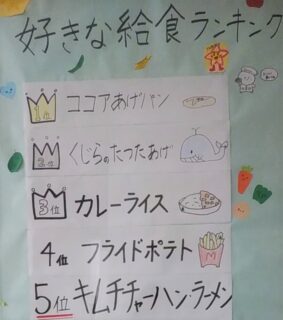 好きな給食ランキング
1位 ココアあげパン
2位 くじらのたつたあげ
3位 カレーライス
4位 フライドポテト
5位 キムチチャーハン・ラーメン